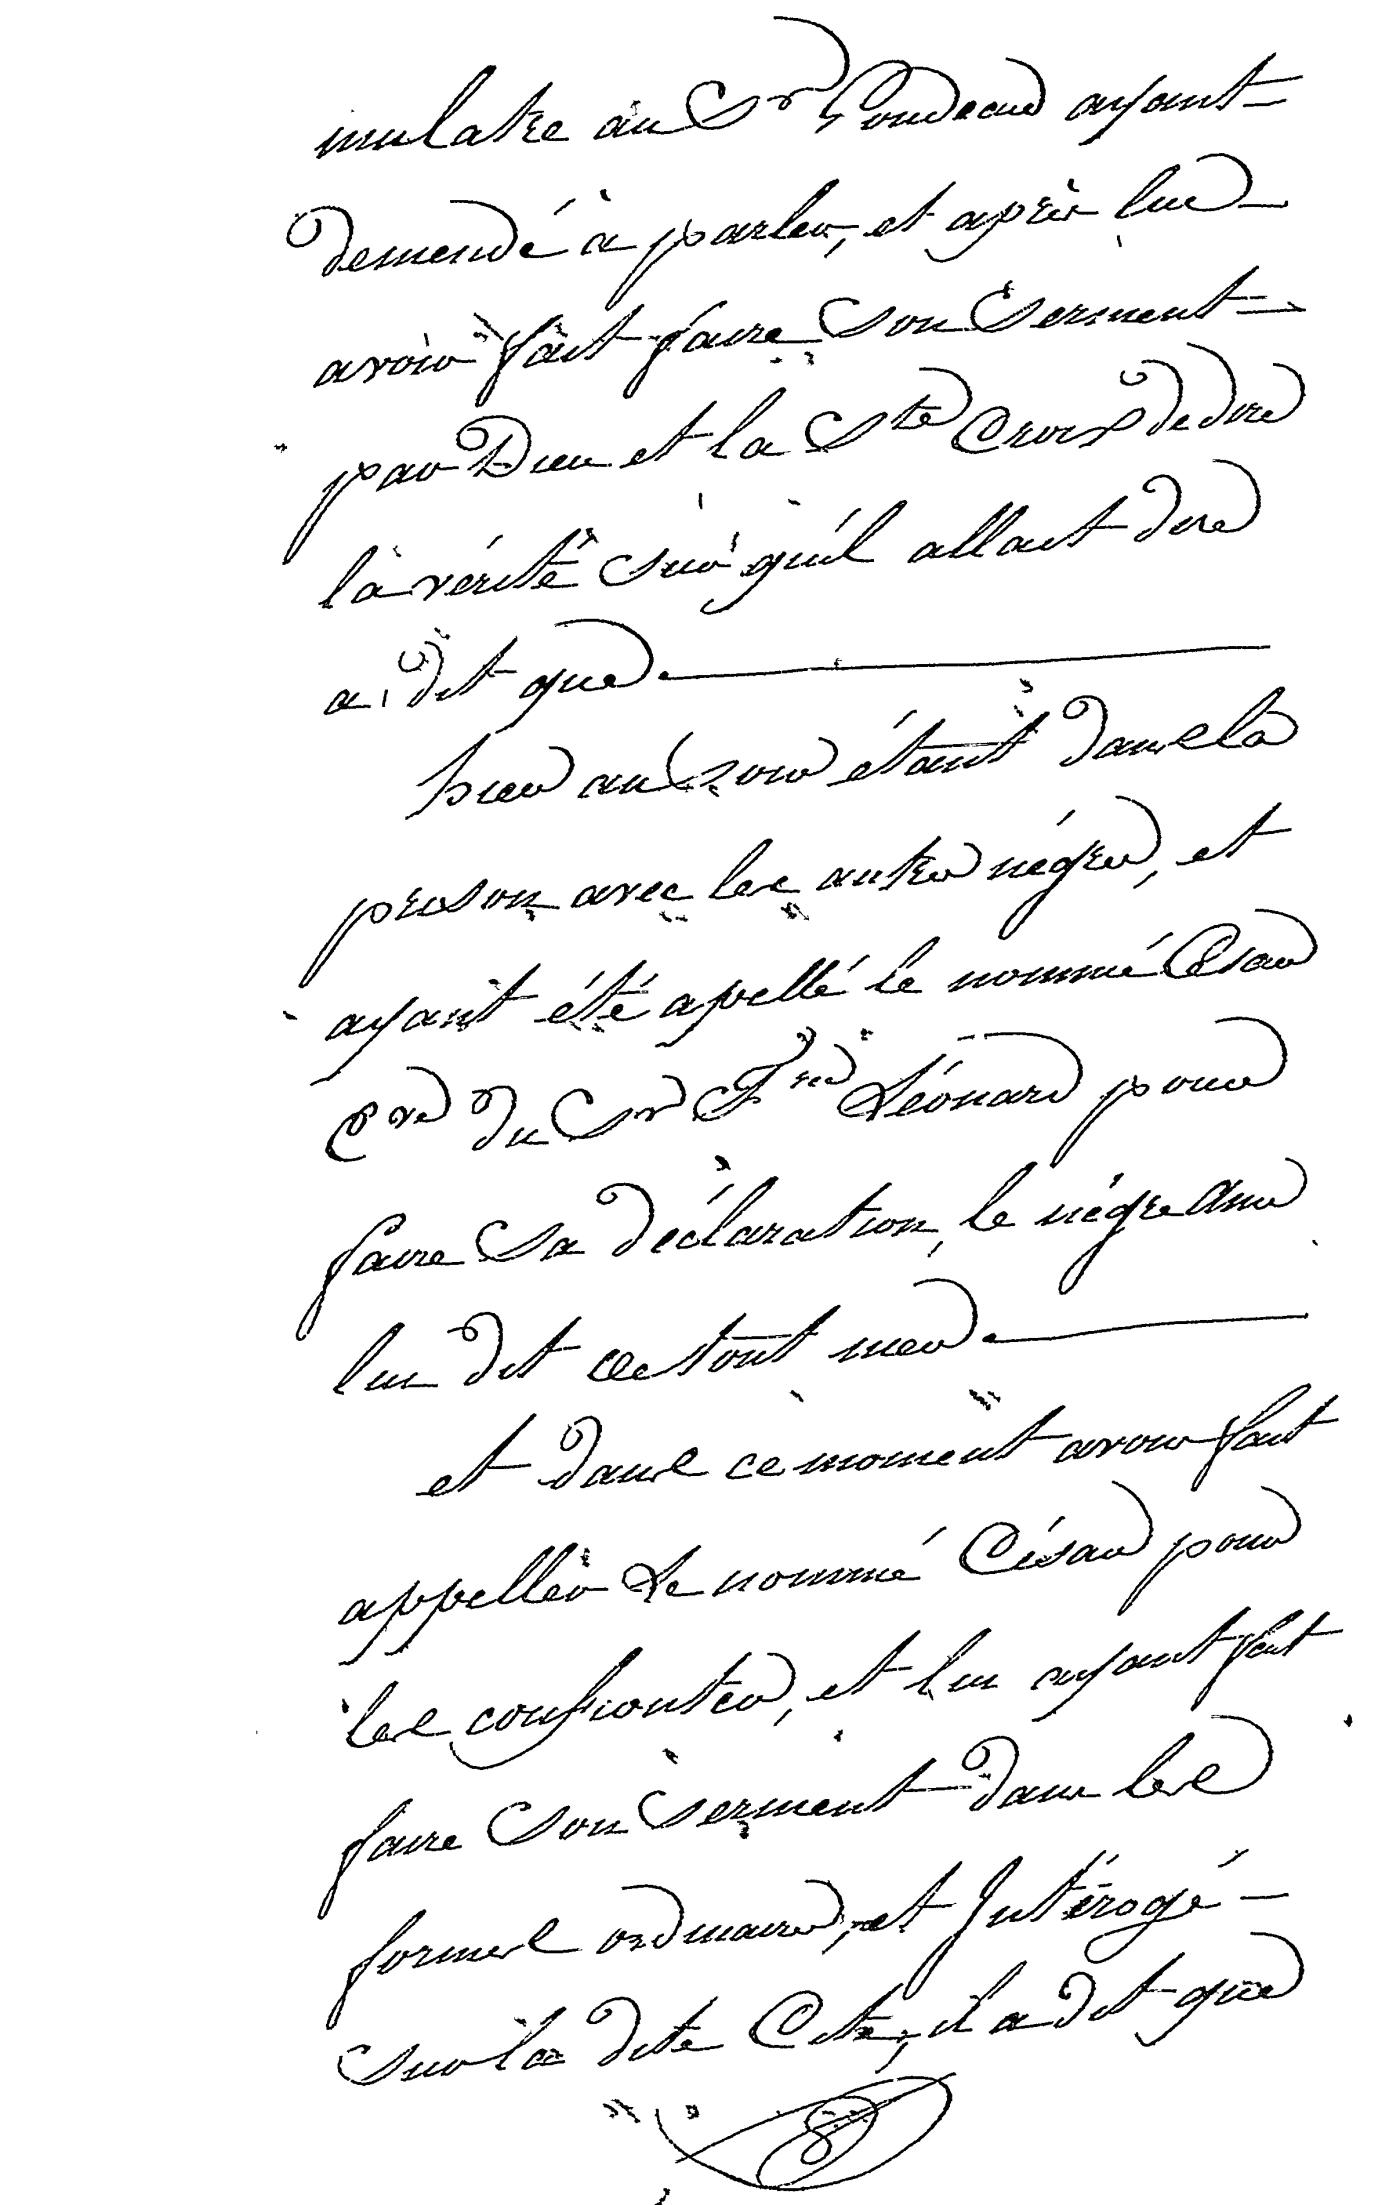 mulatre au Sr Sondeau ayant
demendé à parler, et après lui
avoir fait faire Son Serment
par Dieu et la Ste Croix de dire
la vérité Sur qu'il allait dire
a dit que
hier au Soir étant dans la
prison avec les autres négres, et
ayant été apellé le nommé César
Cre du Sr Frs Léonard pour
faire Sa déclaration, le négre
lui dit cestont mes
et dans ce moment avoir fait
appeller Le nommé César pour
les confronter, et lui ayant fait
faire Son Serment dans les
formes ordinaires, et Intérogé
Sur la dite Cite, il a dit que